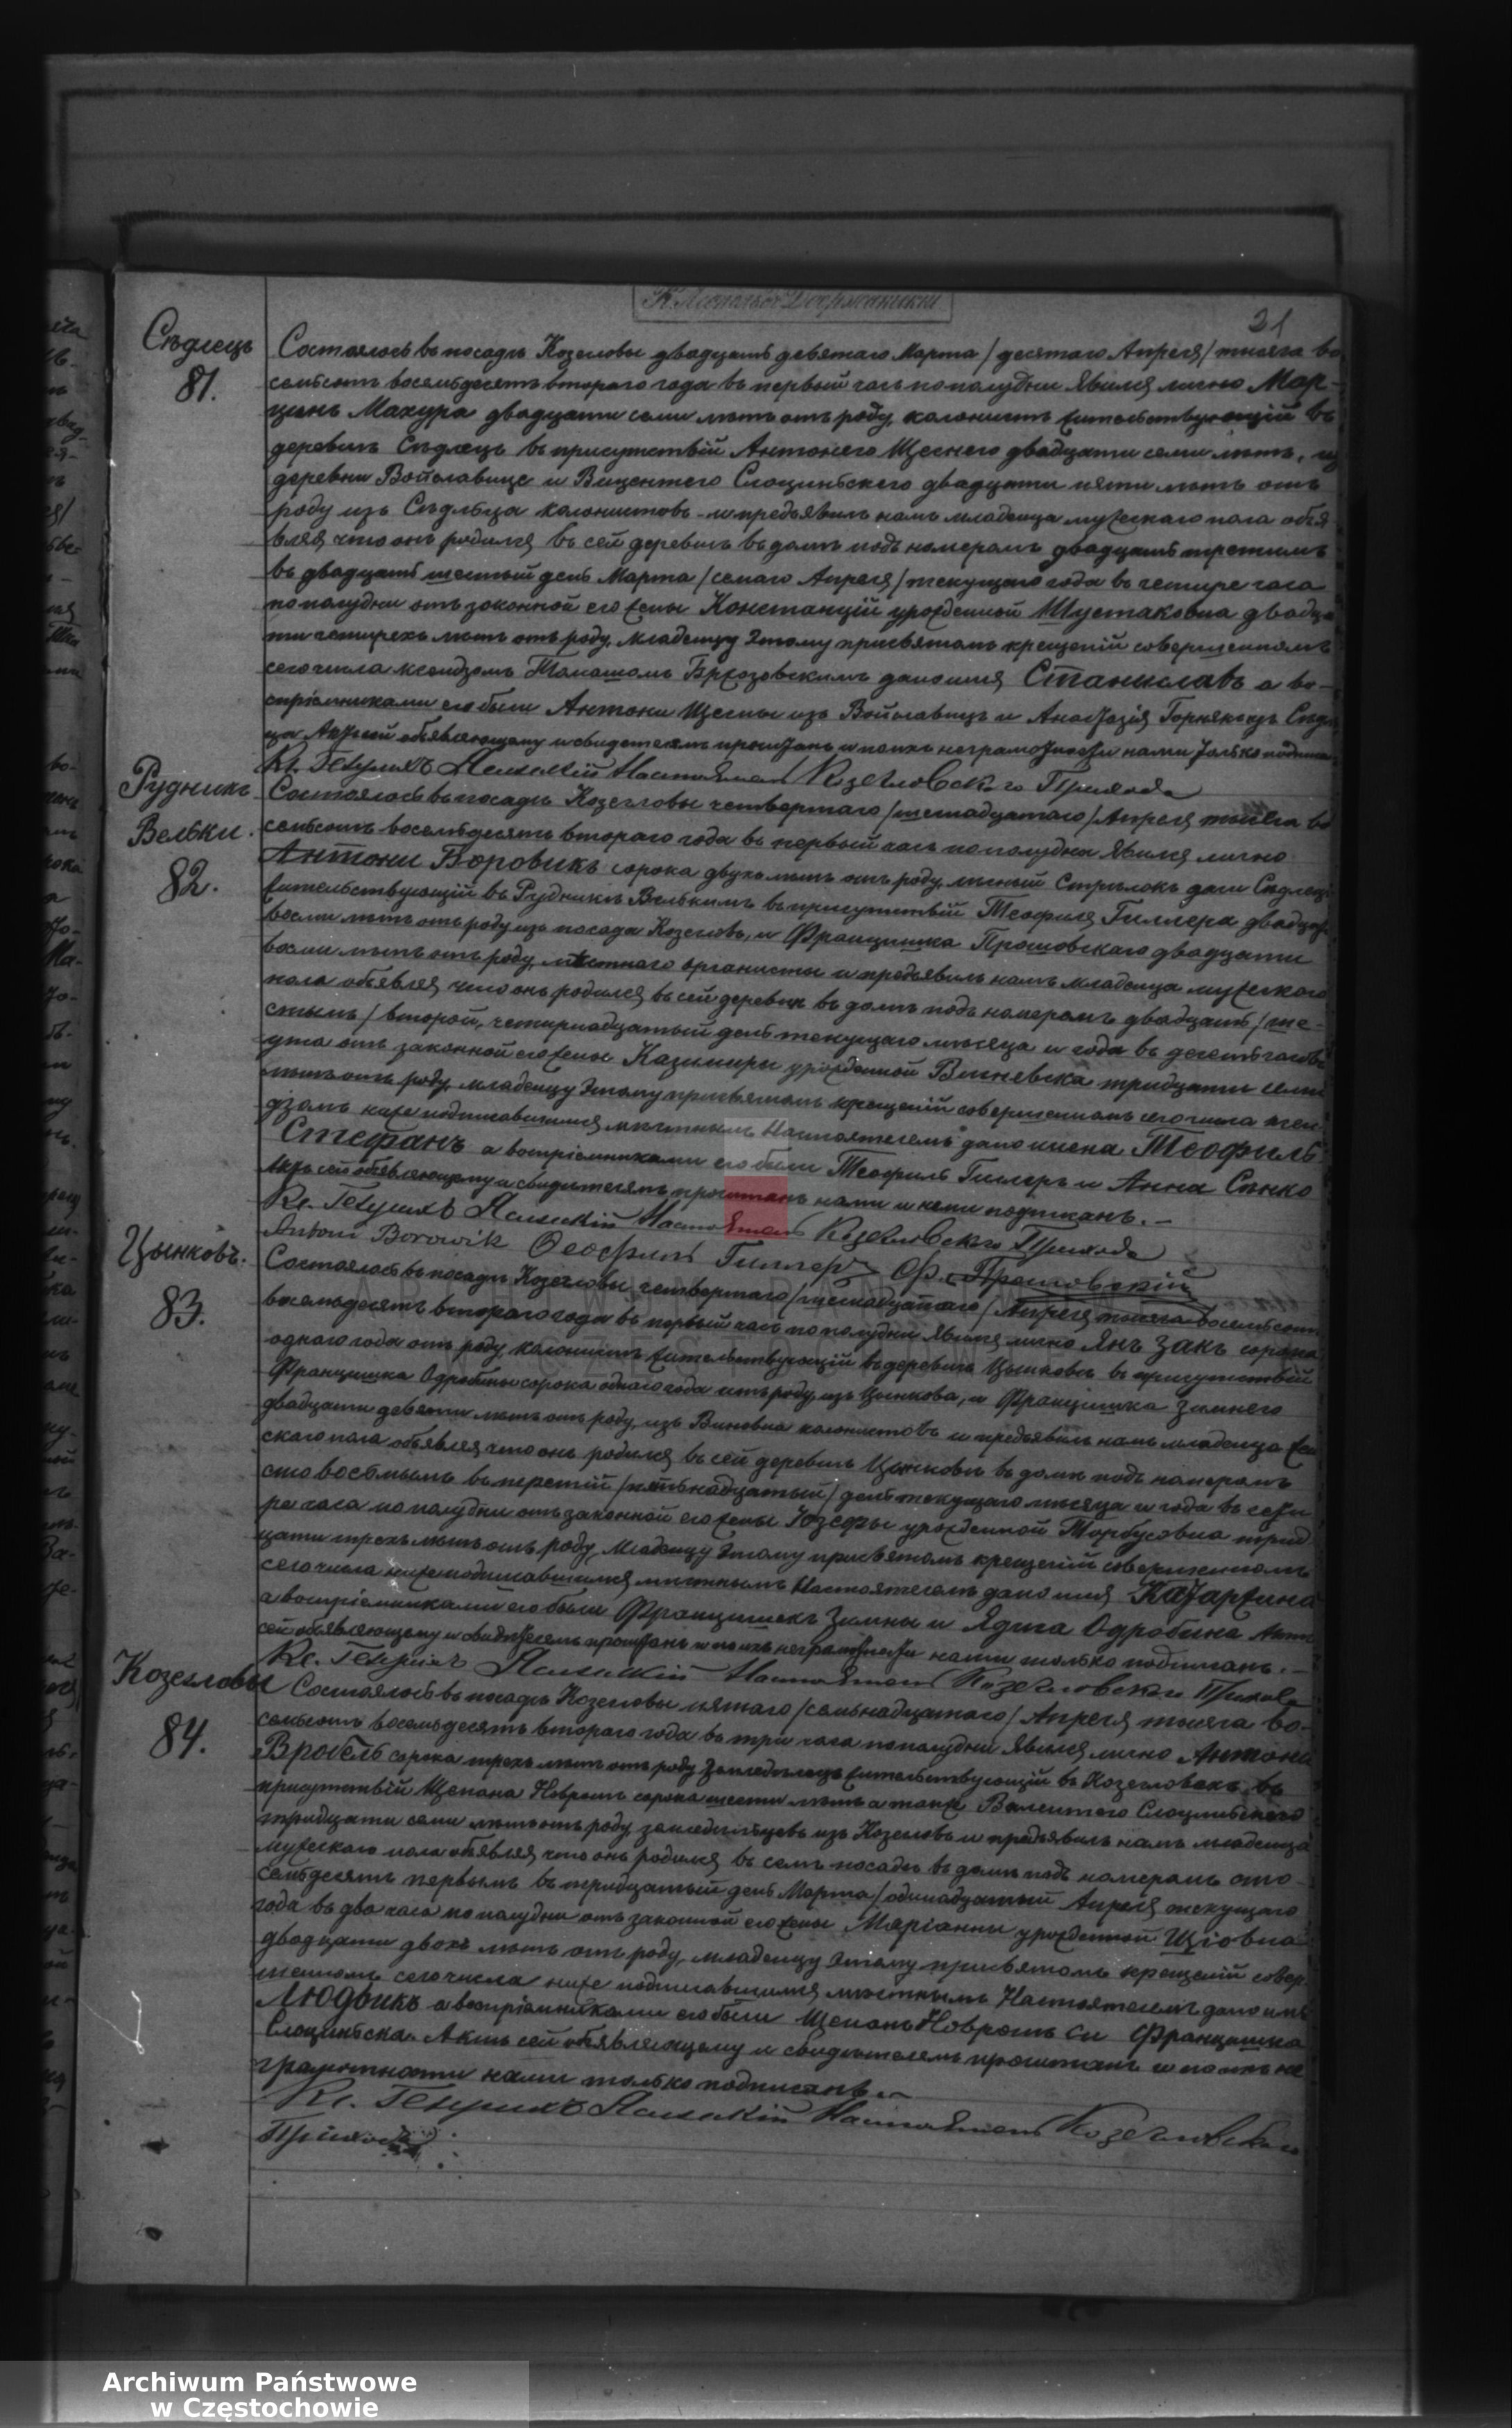 31
Сѣдлець
81.
Состоялось въ посадѣ Козегловы двадцать девятаго Марта / десятаго Апрѣля / тысяча во
семьсотъ восемьдесятъ втораго года въ первый часъ пополудни явился лично Мар-
цинъ Махура двадцати семи лѣтъ отъ роду, колонистъ жительствующій въ
деревнѣ Сѣдлець въ присутствій Антонего Щеснего двадцати семи лѣтъ, изъ
деревни Войславице и Вицентего Слоцинбского двадцати пяти лѣтъ отъ
роду изъ Сѣдльца колонистовъ - и предъявилъ намъ младенца мужескаго пола объя
вляя что онъ родился въ сей деревнѣ въ домѣ подъ номеромъ двадцать третимъ
въ двадцать шестый день Марта / семаго Апрѣля / текущаго года въ четыре часа
пополудни отъ законной его жены Констанцій урожденной Шустаковна двадца
ти четырехъ лѣтъ отъ роду, младенцу этому при святомъ крещеній совершенномъ
сего числа ксендзомъ Томашомъ Бржозовскимъ дано имя Станиславъ а во-
спріемниками его были Антони Щесны изъ Войславицъ и Анастазія Горнякъ изъ Сѣдль
ца Актъ сей объявляющему и свидетелямъ прочитанъ и по ихъ неграмотности нами только подписанъ
Кс. Генрихъ Настоятель Козегловскаго Прихода
Рудникъ
Вельки.
82.
Состоялось въ посадѣ Козегловы четвертаго / шестнадцатаго / Апрѣля тысяча во
семьсотъ восемьдесятъ втораго года въ первый часъ пополудни явился лично
Антони Боровикъ сорока двухъ лѣтъ отъ роду, лѣсный стрѣлокъ дачи Сѣдлець
жительствующій въ Рудникѣ Велькимъ въ присутствій Теофиля Гиллера двадцать
восми лѣтъ отъ роду изъ посада Козегловъ, и Францишка Прошовскаго двадцати
восми лѣтъ отъ роду, мѣстнаго органисты и предъявилъ намъ младенца мужескаго
пола объявляя что онъ родился въ сей деревнѣ въ домѣ подъ номеромъ двадцать / ше-
стымъ / второй, четырнадцатый день текущаго мѣсяца и года въ десять часовъ
утра отъ законной его жены Казимиры урожденной Вишневска тридцати семи
лѣтъ отъ роду, младенцу этому при святомъ крещеній совершенномъ сего числа ксен-
дзомъ ниже подписавшимся мѣстнымъ Настоятелемъ дано имена Теофиль
Стефанъ а воспріемниками его были Теофиль Гиллеръ и Анна Сѣнко
Актъ сей объявляющему и свидетелямъ прочитанъ нами и ими подписанъ. -
Кс. Генрихъ Настоятель Козегловскаго Прихода
Antoni Borowik Теофилъ Гиллеръ Фр. Прошовскій
Цынковъ.
83.
Состоялось въ посадѣ Козегловы четвертаго / шестнадцатаго / Апрѣля тысяча восемьсотъ
восемьдесятъ втораго года въ первый часъ пополудни явился лично Янъ Закъ сорока
одного года отъ роду колонистъ жительствующій въ деревнѣ Цынковъ въ присутствій
Францишка Одробины сорока одного года отъ роду, изъ Цынкова, и Францишка Зимнего
двадцати девяти лѣтъ отъ роду, изъ Виновна колонистовъ и предъявилъ намъ младенца жен
скаго пола объявляя что онъ родился въ сей деревнѣ Цынковъ въ домѣ подъ номеромъ
сто восьмымъ въ третій / пятьнадцатый / день текущаго мѣсяца и года въ четы
ре часа по полудни отъ законной его жены Юзефы урожденной Торбусовна трид
цати трехъ лѣтъ отъ роду, младенцу этому при святомъ крещеній совершенномъ
сего числа ниже подписавшимся мѣстнымъ Настоятелемъ дано имя Катаржина
а воспріемниками его были Францишекъ Зимны и Ядвига Одробина Актъ
сей объявляющему и свидетелямъ прочитанъ и по ихъ неграмотности нами только подписанъ. -
Кс. Генрихъ Настоятель Козегловскаго Прихода
Козегловы
84.
Состоялось въ посадѣ Козегловы пятаго / семьнадцатаго / Апрѣля тысяча во-
семьсотъ восемьдесятъ втораго года въ три часа пополудни явился лично Антони
Вробель сорока трехъ лѣтъ отъ роду земледѣлецъ жительствующій въ Козегловахъ въ
присутствій Щепана Новротъ сорока шести лѣтъ а такж Валентего Слоцинбского
тридцати семи лѣтъ отъ роду, земледѣльцевъ изъ Козегловъ и предъявилъ намъ младенца
мужескаго пола объявляя что онъ родился въ семъ посадѣ въ домѣ подъ номеромъ сто
семьдесятъ первымъ въ тридцатый день Марта / одинадцатый Апрѣля текущаго
года въ два часа по полудни отъ законной его жены Маріанны урожденной
двадцати двохъ лѣтъ отъ роду, младенцу этому при святомъ крещеній совер
шенномъ сего числа ниже подписавшимся мѣстнымъ Настоятелемъ дано имя
Людвикъ а воспріемниками его были Щепанъ Новротъ и Францишка
Слоцинбска. Актъ сей объявляющему и свидетелямъ прочитанъ и по ихъ не
грамотности нами только подписанъ. -
Кс. Генрихъ Настоятель Козегловскаго
Прихода
ARCHIWUM PAŃSTWOWE
W CZĘSTOCHOWIE
Archiwum Państwowe
w Częstochowie